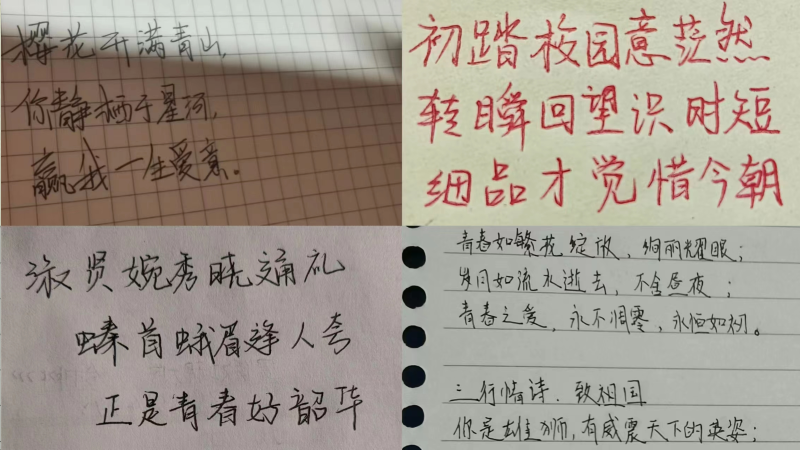 樱花开满青山,
你静栖于星河,
赢我一生爱意。
初踏校园意茫然
转瞬回望识时短
细品才觉惜今朝
淑贤婉秀晓通礼
螓首蛾眉逢人夸
正是青春好韶华
青春如繁花绽放、绚丽耀眼；
岁月如流水逝去，不舍昼夜；
青春之爱，永不凋零，永恒如初。
三行情诗.致祖国
你是雄狮,有威震天下的英姿；